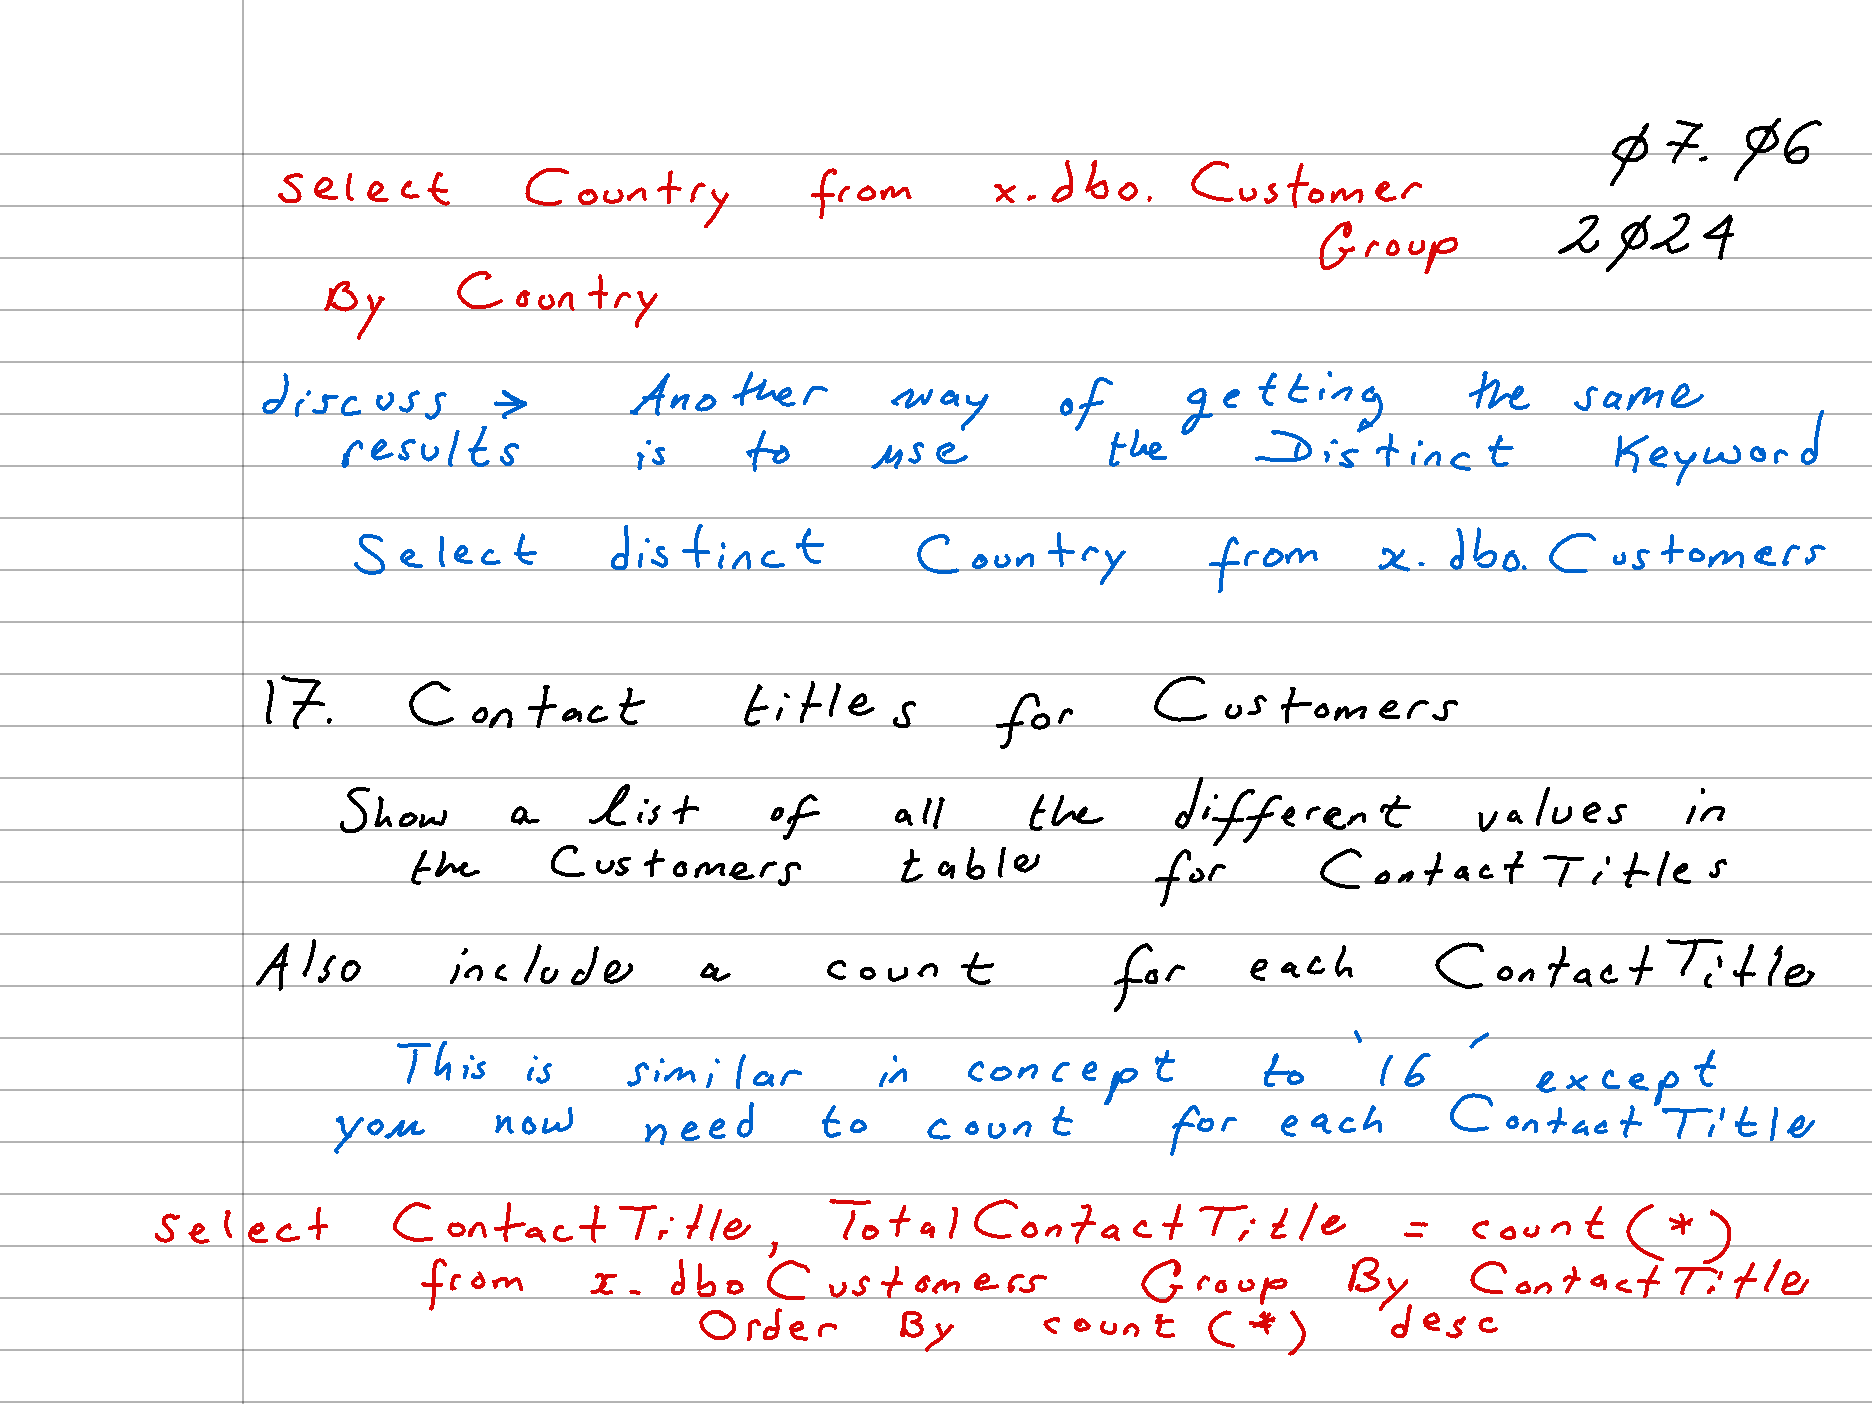 ø7. ø6
select Country from x.dbo. Customer
Group 2ø24
By Country
discuss → Another way of getting the same
results is to use the Distinct Keyword
Select distinct Country from x. dbo. Customers
17. Contact titles for Customers
Show a list of all the different values in
the Customers table for ContactTitles
Also include a count for each ContactTitle
This is similar in concept to `16´ except
you now need to count for each ContactTitle
select ContactTitle, TotalContactTitle = count (*)
from x. dbo Customers Group By ContactTitle
Order By count (*) desc